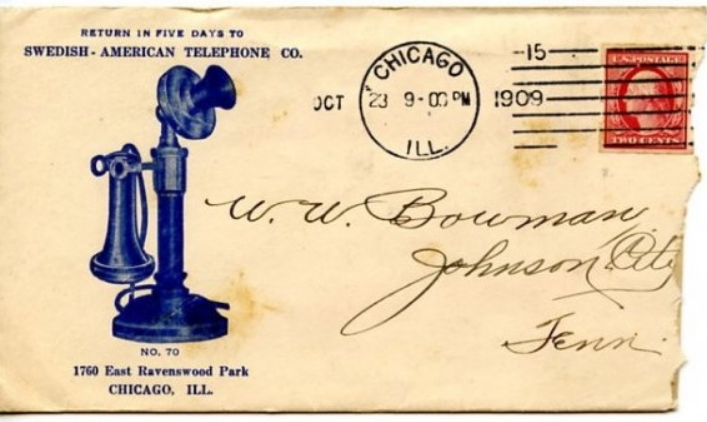 RETURN IN FIVE DAYS TO
SWEDISH-AMERICAN TELEPHONE CO.
CHICAGO
ILL.
OCT 23 9-00 PM 1909
15
U.S. POSTAGE
TWO CENTS
W. W. Bowman
Johnson City
Tenn.
NO. 70
1760 East Ravenswood Park
CHICAGO, ILL.